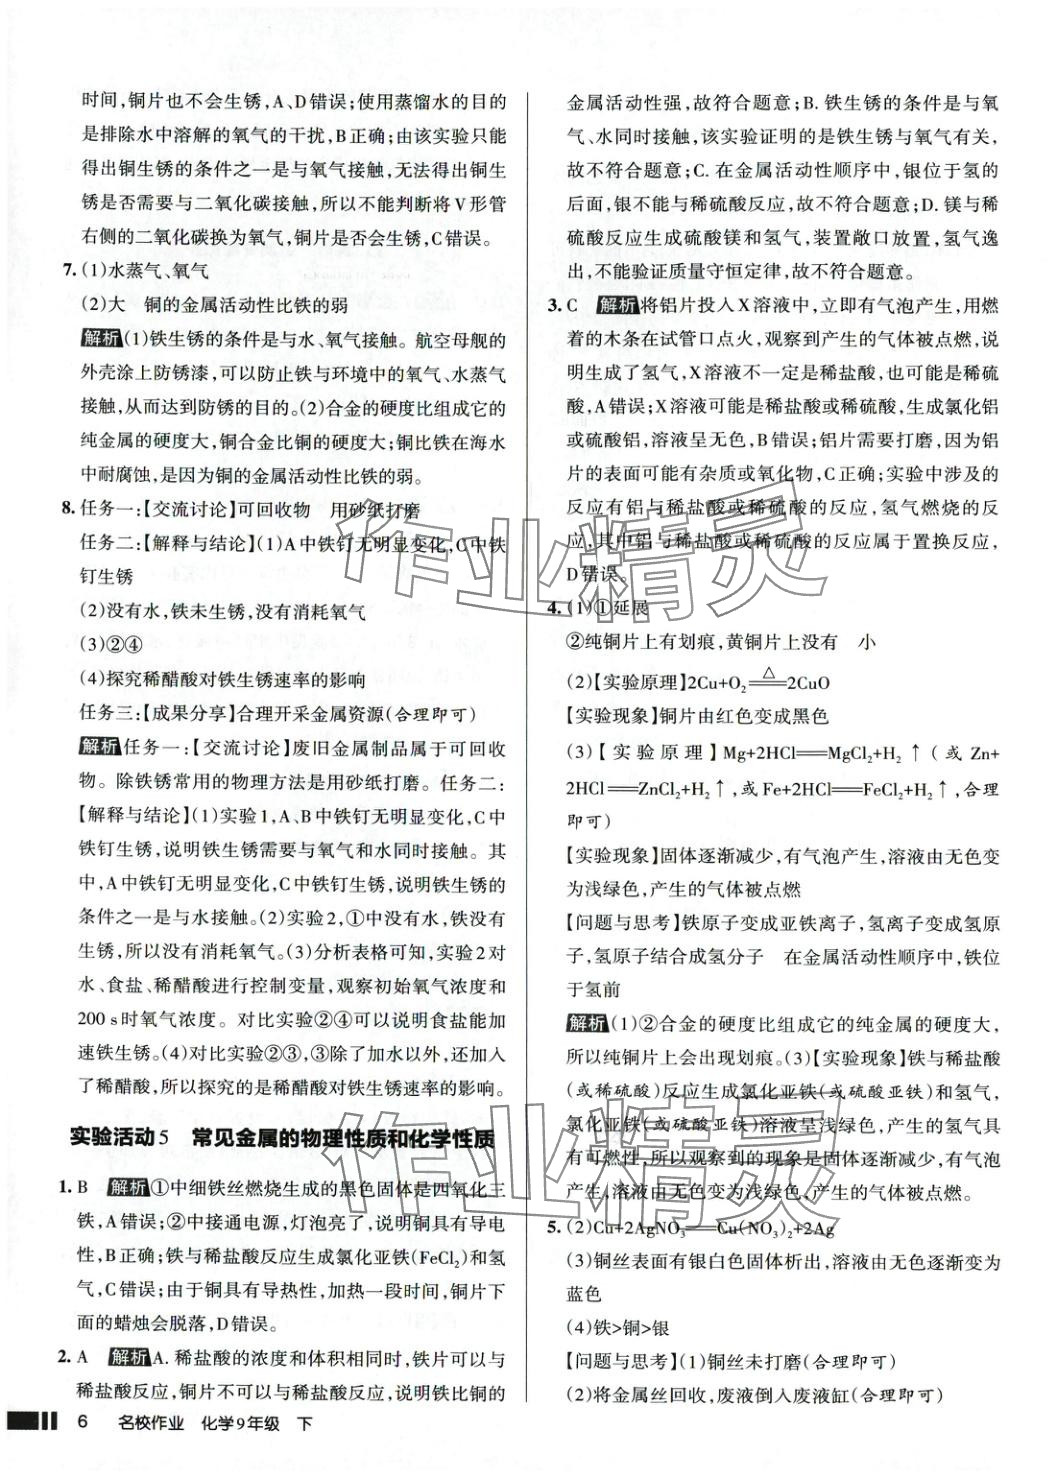 时间,铜片也不会生锈,A、D错误;使用蒸馏水的目的
是排除水中溶解的氧气的干扰,B正确;由该实验只能
得出铜生锈的条件之一是与氧气接触,无法得出铜生
锈是否需要与二氧化碳接触,所以不能判断将V形管
右侧的二氧化碳换为氧气,铜片是否会生锈,C错误。
7. (1)水蒸气、氧气
(2)大 铜的金属活动性比铁的弱
解析(1)铁生锈的条件是与水、氧气接触。航空母舰的
外壳涂上防锈漆,可以防止铁与环境中的氧气、水蒸气
接触,从而达到防锈的目的。(2)合金的硬度比组成它的
纯金属的硬度大,铜合金比铜的硬度大;铜比铁在海水
中耐腐蚀,是因为铜的金属活动性比铁的弱。
8. 任务一:【交流讨论】可回收物 用砂纸打磨
任务二:【解释与结论】(1)A中铁钉无明显变化,C中铁
钉生锈
(2)没有水,铁未生锈,没有消耗氧气
(3)②④
(4)探究稀醋酸对铁生锈速率的影响
任务三:【成果分享】合理开采金属资源(合理即可)
解析任务一:【交流讨论】废旧金属制品属于可回收
物。除铁锈常用的物理方法是用砂纸打磨。任务二:
【解释与结论】(1)实验1,A、B中铁钉无明显变化,C中
铁钉生锈,说明铁生锈需要与氧气和水同时接触。其
中,A中铁钉无明显变化,C中铁钉生锈,说明铁生锈的
条件之一是与水接触。(2)实验2,①中没有水,铁没有
生锈,所以没有消耗氧气。(3)分析表格可知,实验2对
水、食盐、稀醋酸进行控制变量,观察初始氧气浓度和
200 s时氧气浓度。对比实验②④可以说明食盐能加
速铁生锈。(4)对比实验②③,③除了加水以外,还加入
了稀醋酸,所以探究的是稀醋酸对铁生锈速率的影响。
实验活动5 常见金属的物理性质和化学性质
1. B 解析①中细铁丝燃烧生成的黑色固体是四氧化三
铁,A错误;②中接通电源,灯泡亮了,说明铜具有导电
性,B正确;铁与稀盐酸反应生成氯化亚铁(FeCl₂)和氢
气,C错误;由于铜具有导热性,加热一段时间,铜片下
面的蜡烛会脱落,D错误。
2. A 解析A. 稀盐酸的浓度和体积相同时,铁片可以与
稀盐酸反应,铜片不可以与稀盐酸反应,说明铁比铜的
6 名校作业 化学9年级 下
金属活动性强,故符合题意;B. 铁生锈的条件是与氧
气、水同时接触,该实验证明的是铁生锈与氧气有关,
故不符合题意;C. 在金属活动性顺序中,银位于氢的
后面,银不能与稀硫酸反应,故不符合题意;D. 镁与稀
硫酸反应生成硫酸镁和氢气,装置敞口放置,氢气逸
出,不能验证质量守恒定律,故不符合题意。
3. C 解析将铝片投入X溶液中,立即有气泡产生,用燃
着的木条在试管口点火,观察到产生的气体被点燃,说
明生成了氢气,X溶液不一定是稀盐酸,也可能是稀硫
酸,A错误;X溶液可能是稀盐酸或稀硫酸,生成氯化铝
或硫酸铝,溶液呈无色,B错误;铝片需要打磨,因为铝
片的表面可能有杂质或氧化物,C正确;实验中涉及的
反应有铝与稀盐酸或稀硫酸的反应,氢气燃烧的反
应,其中铝与稀盐酸或稀硫酸的反应属于置换反应,
D错误。
4. (1)①延展
②纯铜片上有划痕,黄铜片上没有 小
(2)【实验原理】2Cu+O₂══△══2CuO
【实验现象】铜片由红色变成黑色
(3)【实验原理】Mg+2HCl══MgCl₂+H₂↑(或 Zn+
2HCl══ZnCl₂+H₂↑,或Fe+2HCl══FeCl₂+H₂↑,合理
即可)
【实验现象】固体逐渐减少,有气泡产生,溶液由无色变
为浅绿色,产生的气体被点燃
【问题与思考】铁原子变成亚铁离子,氢离子变成氢原
子,氢原子结合成氢分子 在金属活动性顺序中,铁位
于氢前
解析(1)②合金的硬度比组成它的纯金属的硬度大,
所以纯铜片上会出现划痕。(3)【实验现象】铁与稀盐酸
(或稀硫酸)反应生成氯化亚铁(或硫酸亚铁)和氢气,
氯化亚铁(或硫酸亚铁)溶液呈浅绿色,产生的氢气具
有可燃性,所以观察到的现象是固体逐渐减少,有气泡
产生,溶液由无色变为浅绿色,产生的气体被点燃。
5. (2)Cu+2AgNO₃══Cu(NO₃)₂+2Ag
(3)铜丝表面有银白色固体析出,溶液由无色逐渐变为
蓝色
(4)铁>铜>银
【问题与思考】(1)铜丝未打磨(合理即可)
(2)将金属丝回收,废液倒入废液缸(合理即可)
作业精灵
作业精灵